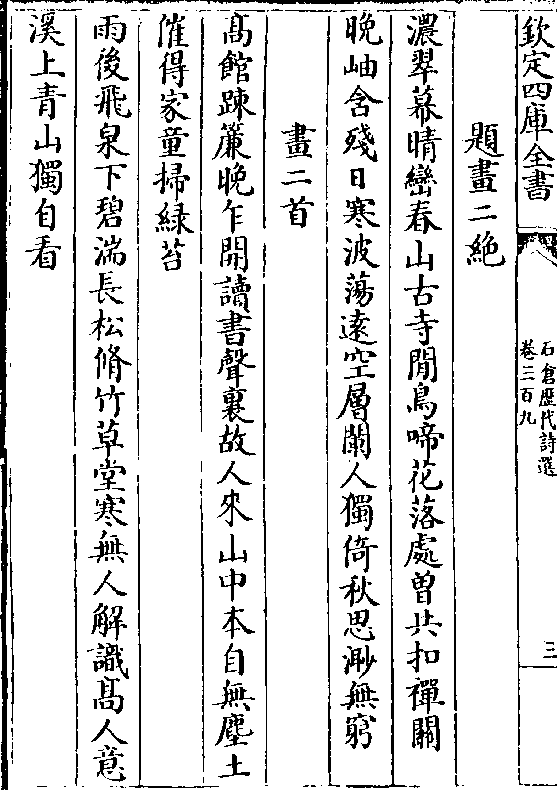 欽定四庫全書
石倉歴代詩選
卷三百九
三
題畫二絶
濃翠幕晴巒春山古寺閒鳥啼花落處曽共扣禪關
晚岫含殘日寒波蕩遠空層闌人獨倚秋思渺無窮
畫二首
髙館踈簾晚乍開讀書聲裏故人來山中本自無塵土
催得家童掃緑苔
雨後飛泉下碧湍長松脩竹草堂寒無人解識髙人意
溪上青山獨自看